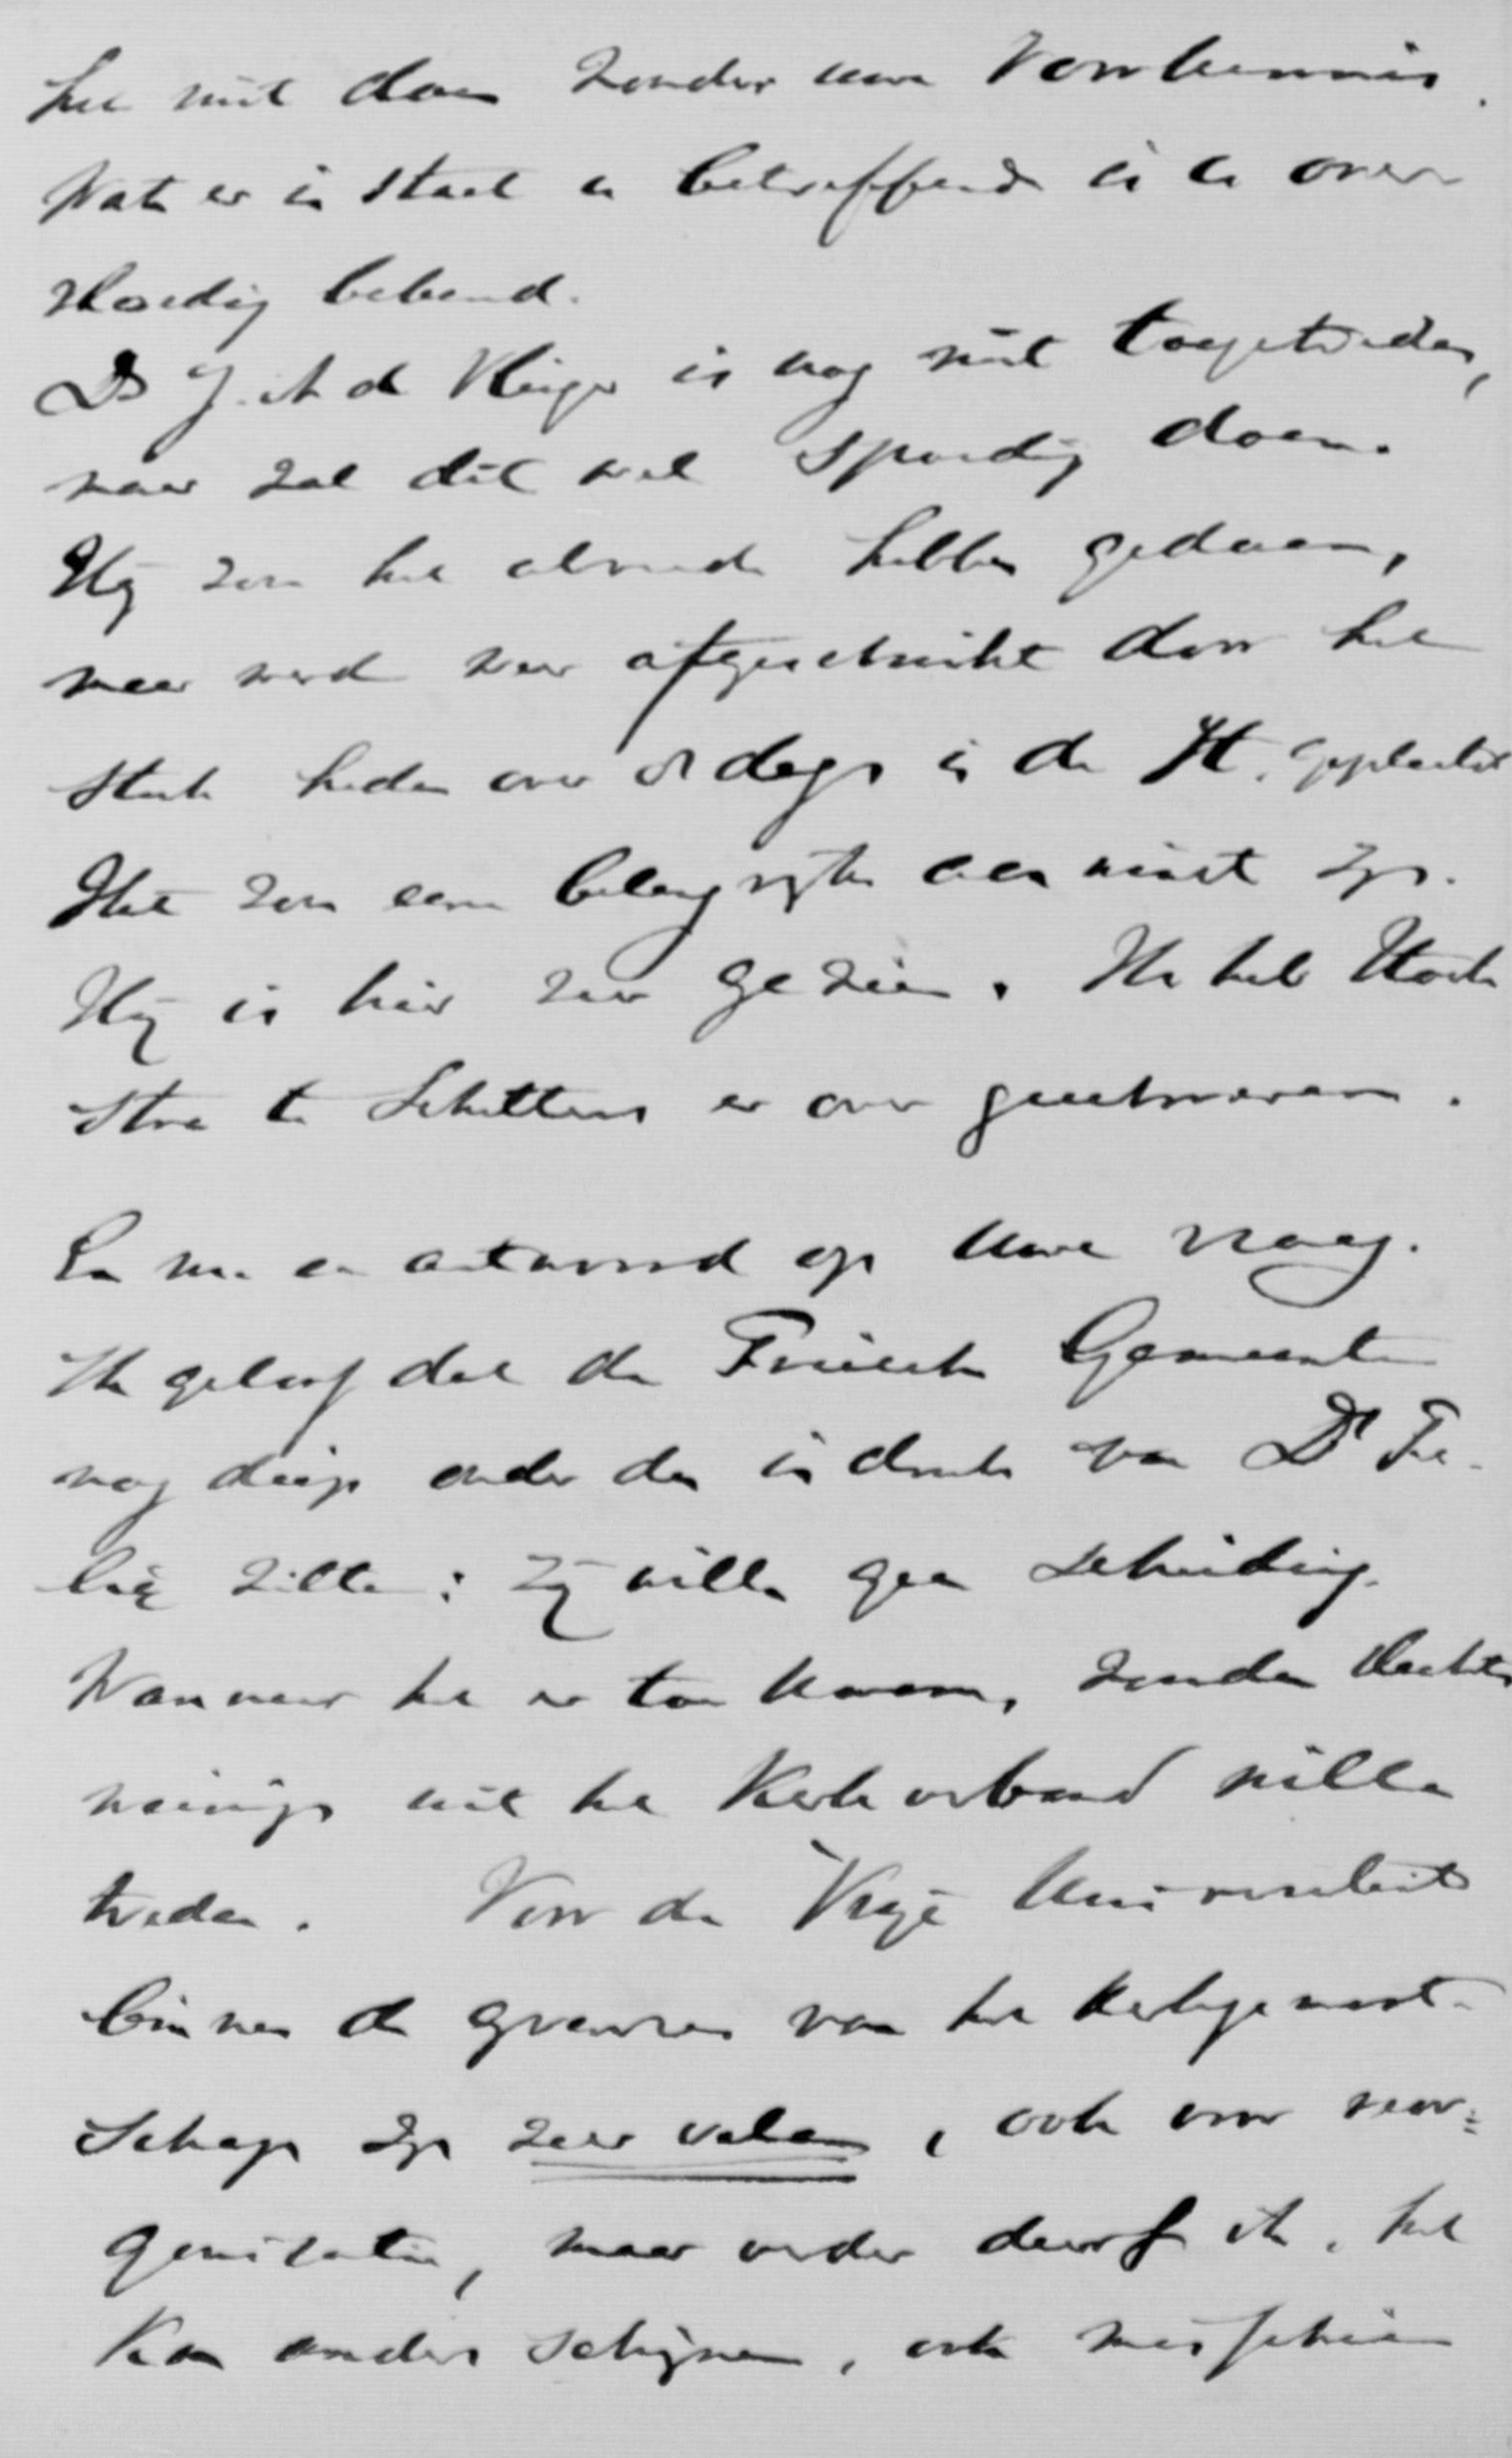 het niet doen zonder uwe voorkennis.
Wat er in staat u betreffende is u over
vloedig bekend.
Ds J. A d Vlieger is nog niet toegetreden,
maar zal dit wel spoedig doen.
Hij zou het alreede hebben gedaan,
maar werd weer afgeschrikt door het
stuk heden over 8 dagen in de H. geplaatst
Het zou eene belangrijke aanwinst zijn.
Hij is hier zeer gezien. Ik heb Hoek
stra te Schettens er over geschreven.
En nu en antwoord op uwe vraag.
Ik geloof dat de Friesche Gemeenten
nog diep onder den indruk van Ds Fe-
lix zitten: zij willen geen scheiding.
Wanneer het er toe kwam, zouden slechts
weinigen uit het Kerkverband willen
treden. Voor de Vrije Universiteit
binnen de grenzen van het kerkgenoot-
schap zijn zeer velen, ook voor reor-
ganisatie, maar verder durf ik, het
kan anders schijnen, ook misschien